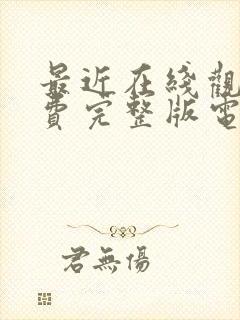 最近在綫觀
費完整版電
君無傷